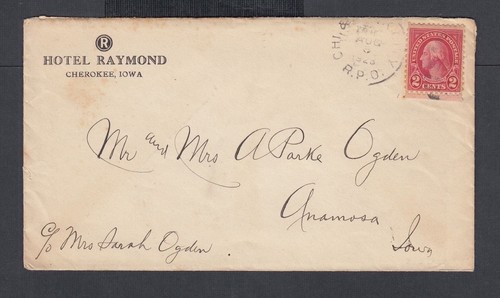 R
HOTEL RAYMOND
CHEROKEE, IOWA
AUG
R.P.O.
UNITED STATES POSTAGE
2 CENTS 2
Mr and Mrs A Parke Ogden
Anamosa
Iowa
c/o Mrs Sarah Ogden